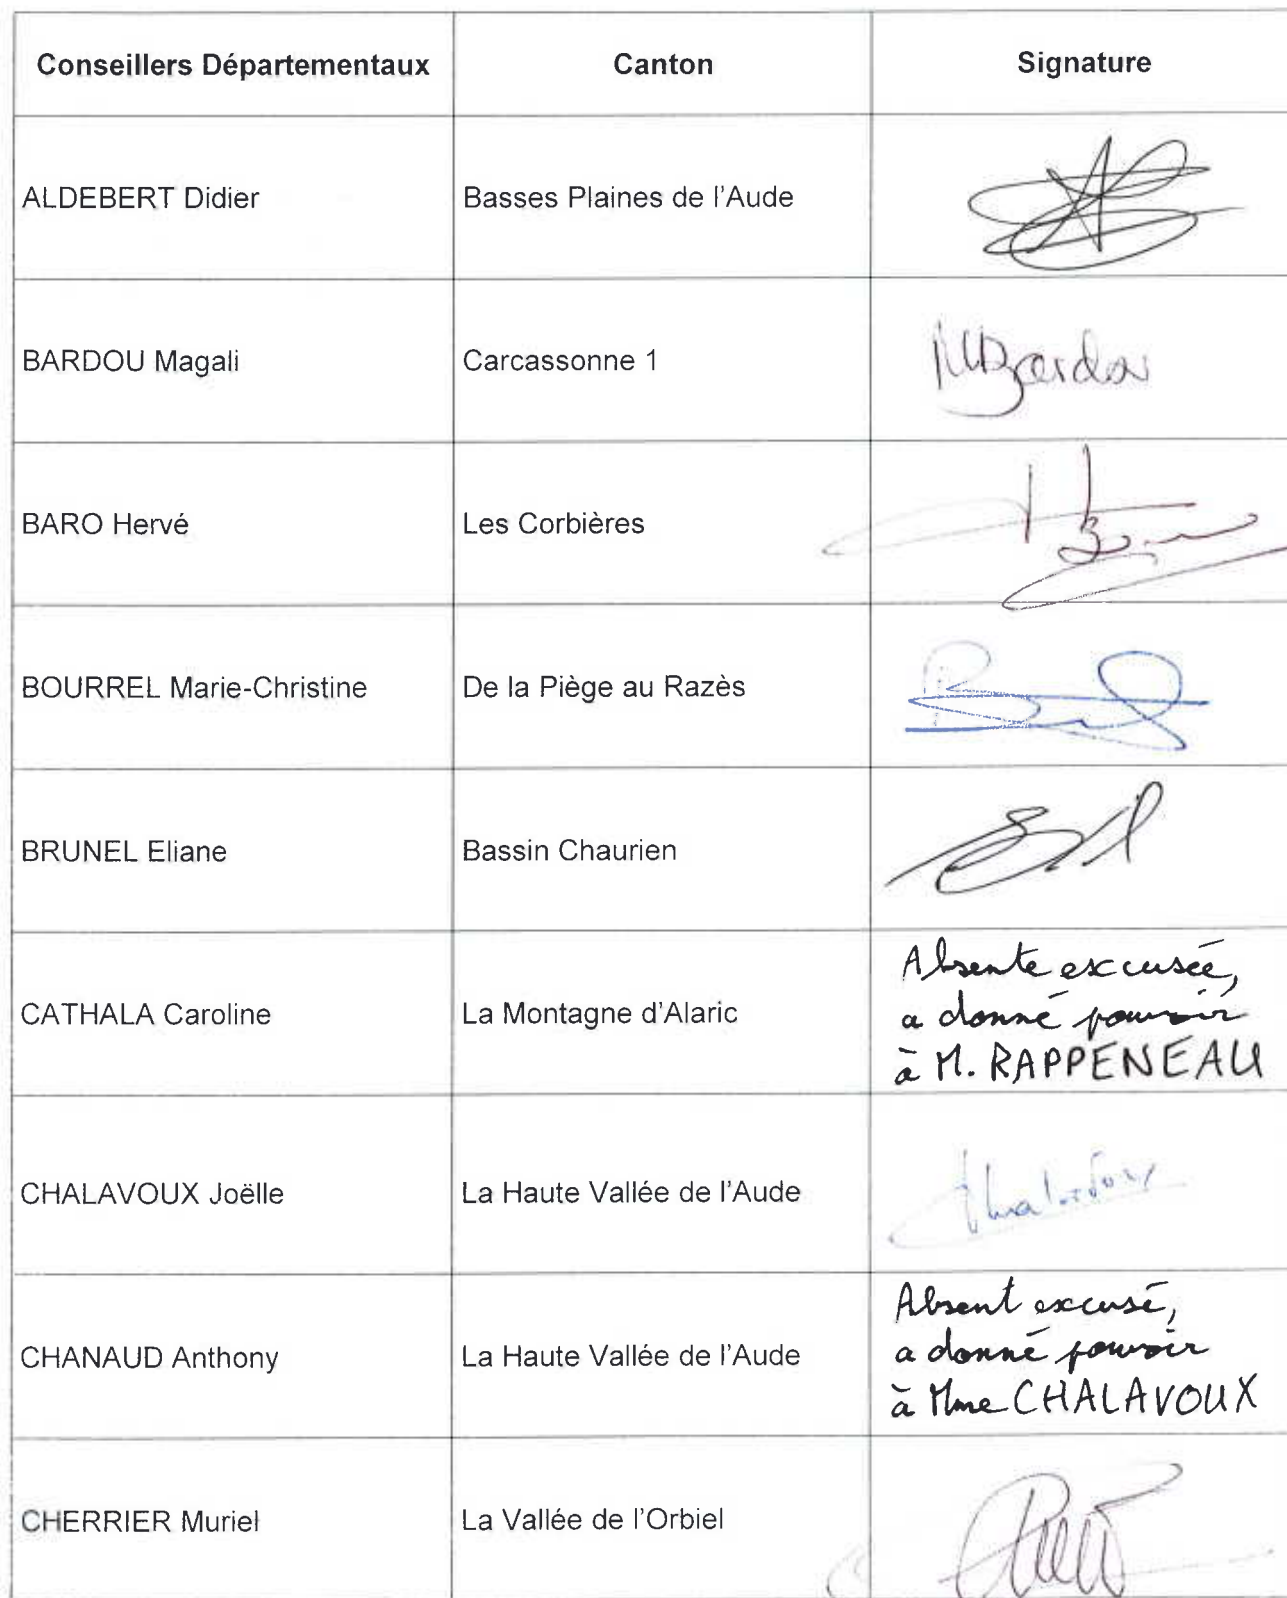 Conseillers Départementaux Canton Signature
ALDEBERT Didier Basses Plaines de l'Aude
BARDOU Magali Carcassonne 1 MBardou
BARO Hervé Les Corbières
BOURREL Marie-Christine De la Piège au Razès
BRUNEL Eliane Bassin Chaurien
Absente excusée,
CATHALA Caroline La Montagne d'Alaric a donné pouvoir
à M. RAPPENEAU
CHALAVOUX Joëlle La Haute Vallée de l'Aude Chalavoux
Absent excusé,
CHANAUD Anthony La Haute Vallée de l'Aude a donné pouvoir
à Mme CHALAVOUX
CHERRIER Muriel La Vallée de l'Orbiel